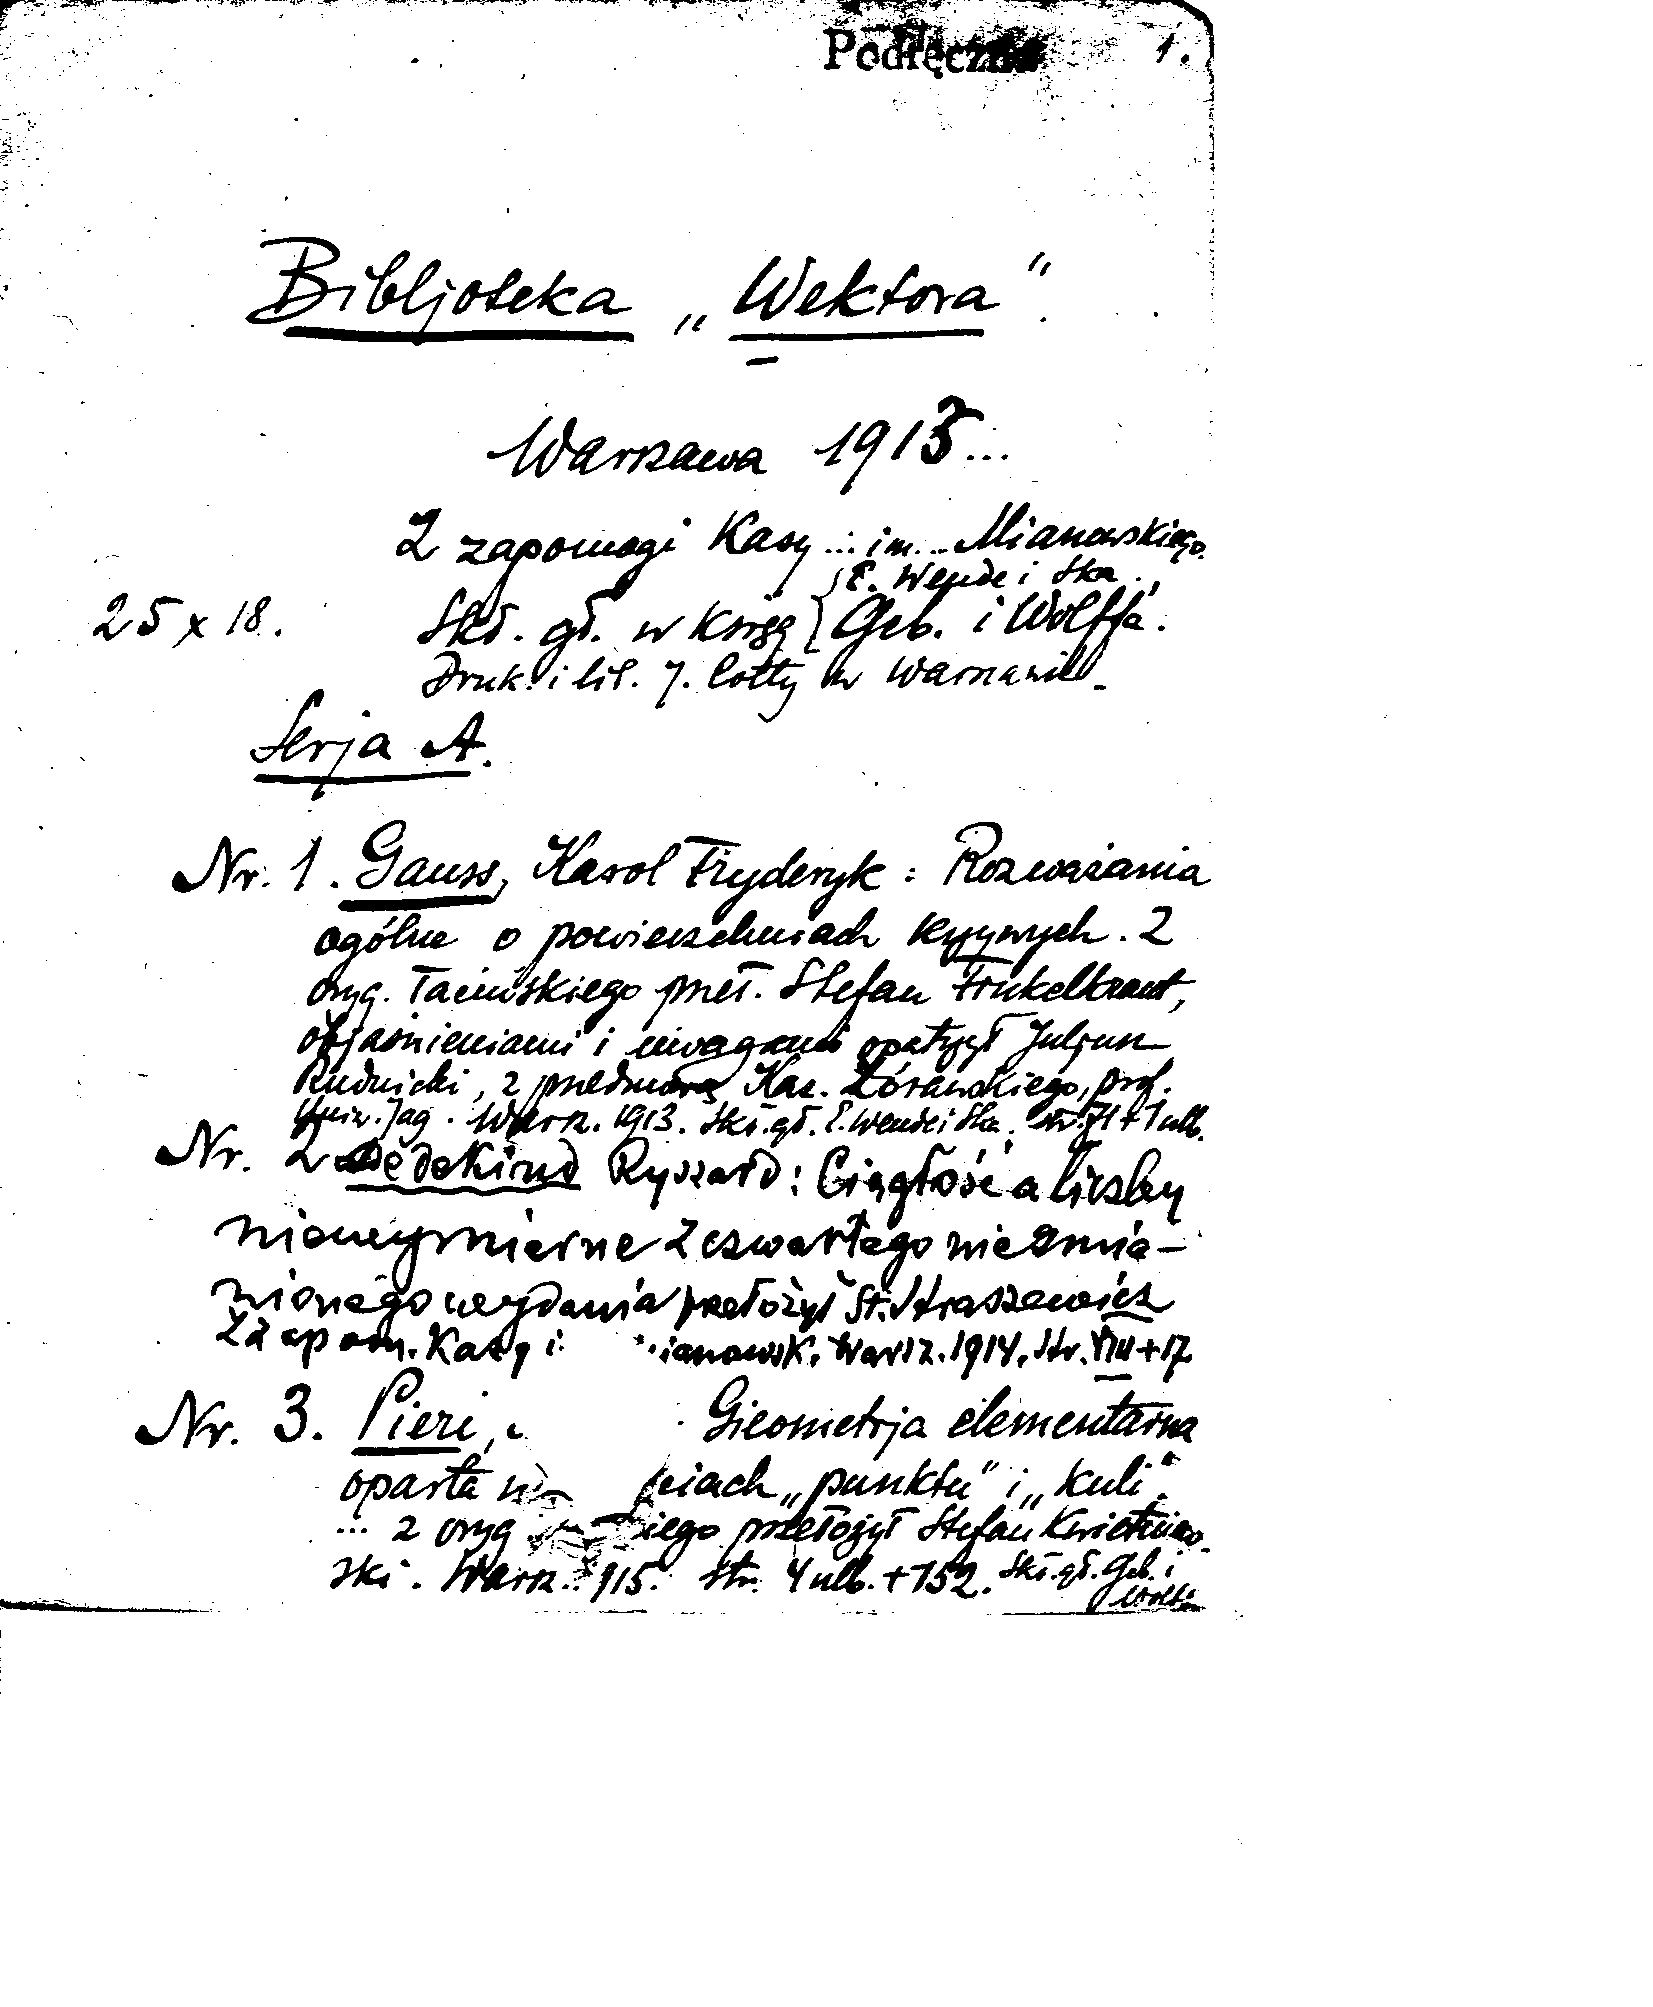 Podręczna 1.
Bibljoteka „Wektora".
Warszawa 1913...
Z zapomogi Kasy ... im... Mianowskiego.
E. Wende i Ska.,
25 x 18. Skł. gł. w księg Geb. i Wolffa.
Druk. i lit. J. Cotty w Warszawie.
Serja A.
Nr. 1. Gauss, Karol Fryderyk: Rozważania
ogólne o powierzchniach krzywych. Z
oryg. łacińskiego przeł. Stefan
objaśnieniami i uwagami opatrzył Juljusz
Rudnicki, z przedmową Kaz. Żórawskiego, prof.
Uniw. Jag. Warsz. 1913. Skł. gł. E. Wende i Ska. str. 71 + 1 nlb.
Nr. 2 Dedekind Ryszard: Ciągłość a liczby
niewymierne z czwartego niezmie-
nionego wydania przełożył St. Straszewicz
Z zapom. Kasy i ianowsk. Warsz. 1914. Str. VIII + 17
Nr. 3. Pieri, Gieometrja elementarna
oparta na ciach „punktu" i „kuli".
... z oryg kiego przełożył Stefan Kwietniew-
ski. Warsz. 1915. str. 4 nlb. + 152. Skł. gł. Geb. i
Wolffa